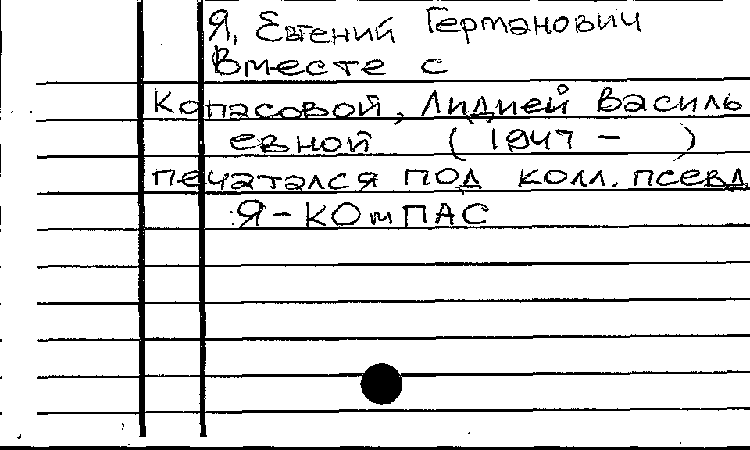 Я, Евгений Германович
Вместе с
Копасовой, Лидией Василь
евной (1947 – )
печатался под колл. псевд.
Я-КОмПАС